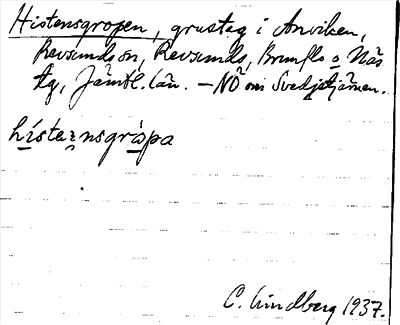 Histensgropen, grustag i Anviken,
Revsunds sn, Revsunds, Brunflo o Näs
tg, Jämtl. län. – NÖ om Svedjetjärnen.
histensgròpa
C. Lindberg 1937.